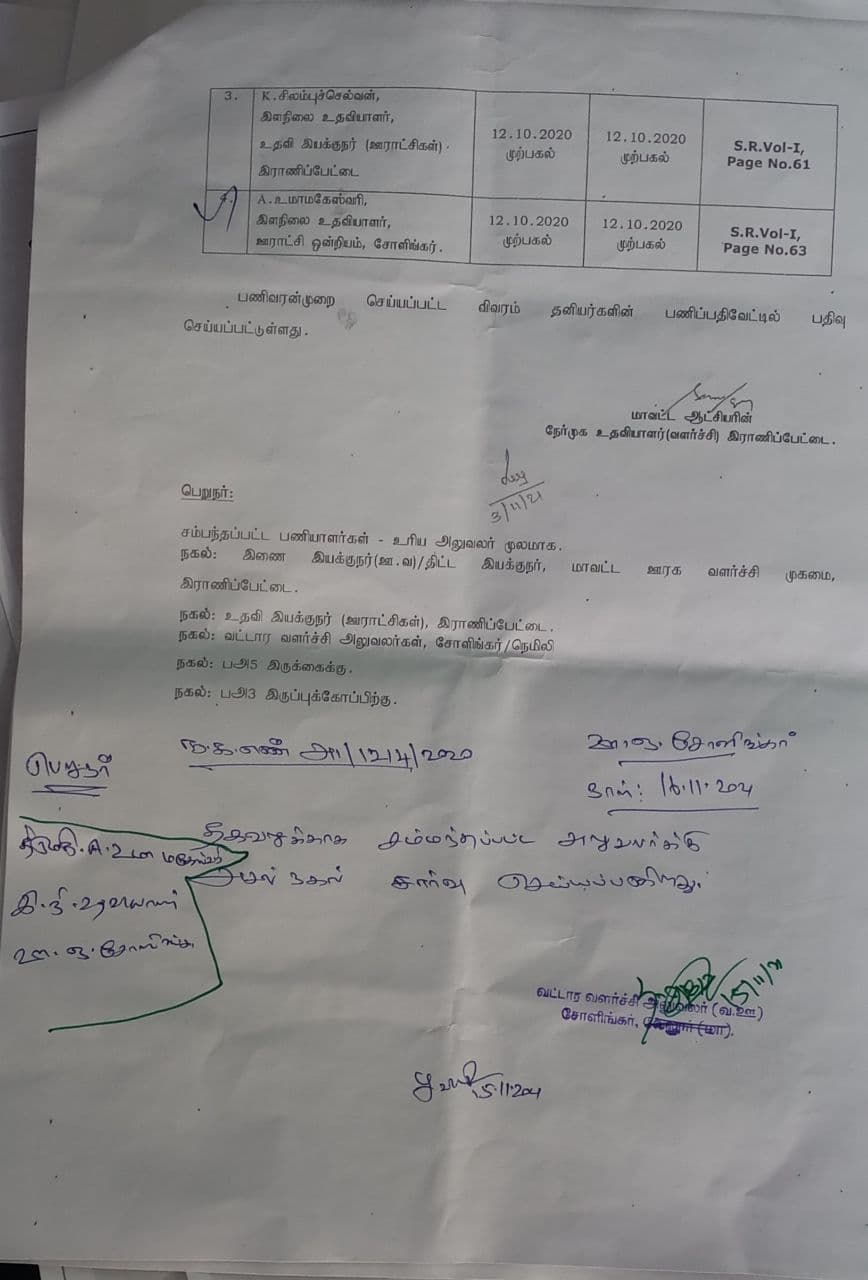 3. K.சிலம்புச்செல்வன்,
இளநிலை உதவியாளர்,
உதவி இயக்குநர் (ஊராட்சிகள்).
இராணிப்பேட்டை
12.10.2020
முற்பகல்
12.10.2020
முற்பகல்
S.R.Vol-I,
Page No.61
A.உமாமகேஸ்வரி,
இளநிலை உதவியாளர்,
ஊராட்சி ஒன்றியம், சோளிங்கர்.
12.10.2020
முற்பகல்
12.10.2020
முற்பகல்
S.R.Vol-I,
Page No.63
பணிவரன்முறை செய்யப்பட்ட விவரம் தனியர்களின் பணிப்பதிவேட்டில் பதிவு
செய்யப்பட்டுள்ளது.
மாவட்ட ஆட்சியரின்
நேர்முக உதவியாளர்(வளர்ச்சி) இராணிப்பேட்டை.
3/11/21
பெறுநர்:
சம்பந்தப்பட்ட பணியாளர்கள் - உரிய அலுவலர் மூலமாக.
நகல்: இணை இயக்குநர்(ஊ.வ)/திட்ட இயக்குநர், மாவட்ட ஊரக வளர்ச்சி முகமை,
இராணிப்பேட்டை.
நகல்: உதவி இயக்குநர் (ஊராட்சிகள்), இராணிப்பேட்டை.
நகல்: வட்டார வளர்ச்சி அலுவலர்கள், சோளிங்கர்/நெமிலி
நகல்: பஅ5 இருக்கைக்கு.
நகல்: பஅ3 இருப்புக்கோப்பிற்கு.
ந.க.எண் அ1/1214/2020
ஊ.ஒ. சோளிங்கர்
நாள்: 16.11.2021
பெறுநர்
திருமதி.A.உமா மகேஸ்வரி
இ.நி.உதவியாளர்
ஊ.ஒ.சோளிங்கர்
சம்மந்தப்பட்ட அலுவலர்க்கு
நகல் சார்வு செய்யப்படுகிறது.
15/11/21
வட்டார வளர்ச்சி அலுவலர் (வ.ஊ)
சோளிங்கர்,
15.11.2021